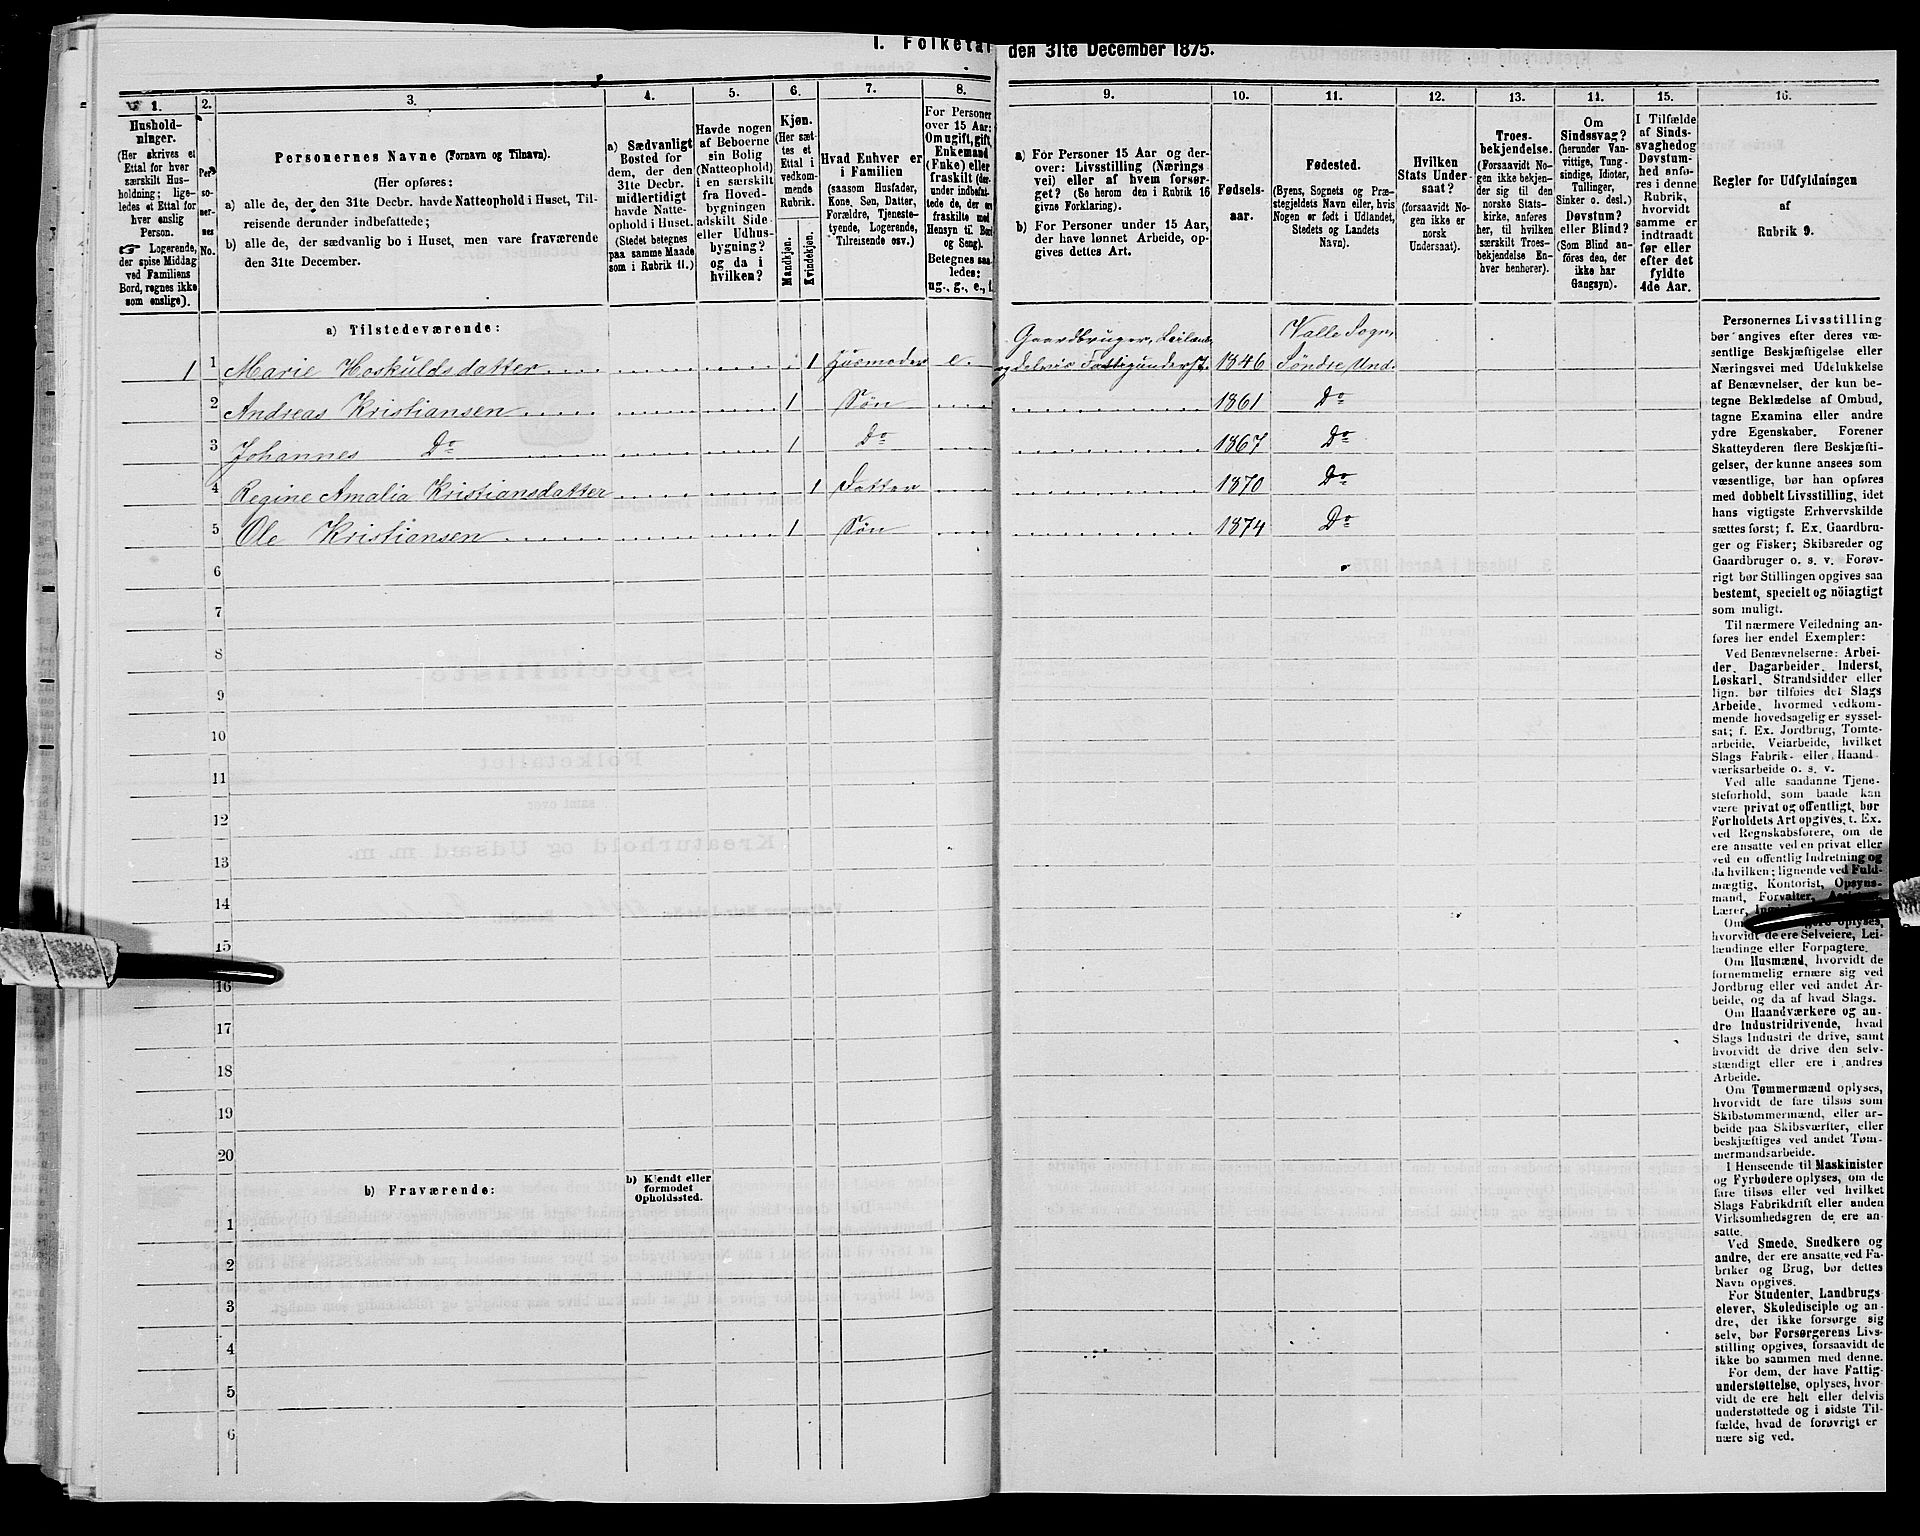 I. Folketal
den 31te December 1875.
1.
Husholdninger.
(Her skrives et
Ettal for hver
særskilt Husholdning;
ligeledes et Ettal for
hver enslig
Person.
☞ Logerende,
der spise Middag
ved Familiens
Bord, regnes ikke
som enslige).
2.
Personernes
No.
3.
Personernes Navne (Fornavn og Tilnavn).
(Her opføres:
a) alle de, der den 31te Decbr. havde Natteophold i Huset, Tilreisende
derunder indbefattede;
b) alle de, der sædvanlig bo i Huset, men vare fraværende
den 31te December.
4.
a) Sædvanligt
Bosted for
dem, der den
31te Decbr.
midlertidigt
havde Natteophold
i Huset.
(Stedet betegnes
paa samme Maade
som i Rubrik 11.)
5.
Havde nogen
af Beboerne
sin Bolig
(Natteophold)
i en særskilt
fra Hovedbygningen
adskilt Side
eller Udhusbygning?
og da i
hvilken?
6.
Kjøn.
(Her sættes
et
Ettal i
vedkommende
Rubrik.
Mandkjøn.
Kvindekjøn.
7.
Hvad Enhver er
i Familien
(saasom Husfader,
Kone, Søn, Datter,
Forældre, Tjenestetyende,
Logerende,
Tilreisende osv.)
8.
For Personer
over 15 Aar:
Om ugift, gift,
Enkemand
(Enke) eller
fraskilt (derunder indbefattede
de, der ere
fraskilte med
Hensyn til Bord
og Seng).
Betegnes saaledes:
ug., g., e., f.
9.
a) For Personer 15 Aar og derover:
Livsstilling (Næringsvei)
eller af hvem forsørget?
(Se herom den i Rubrik 16
givne Forklaring).
b) For Personer under 15 Aar,
der have lønnet Arbeide, opgives
dettes Art.
10.
Fødselsaar.
11.
Fødested.
(Byens, Sognets og Præstegjeldets
Navn eller, hvis
Nogen er født i Udlandet,
Stedets og Landets
Navn).
12.
Hvilken
Stats Undersaat?
(forsaavidt Nogen
ikke er
norsk
Undersaat).
13.
Troesbekjendelse.
(Forsaavidt Nogen
ikke bekjender
sig til den
norske Statskirke,
anføres
her, til hvilken
særskilt Troesbekjendelse
Enhver henhører).
14.
Om
Sindssvag?
(herunder Vanvittige,
Tungsindige, Idioter,
Tullinger,
Sinker o. desl.)
Døvstum?
eller Blind?
(Som Blind anføres
den, der
ikke har
Gangsyn).
15.
I Tilfælde
af Sindssvaghed
og
Døvstumhed
anføres
i denne
Rubrik,
hvorvidt
samme er
indtraadt
før eller
efter det
fyldte
4de Aar.
16.
Regler for Udfyldningen
af
Rubrik 9.
a) Tilstedeværende:
1 1 Marie Hoskuldsdatter 1 Husmoder e. Gaardbruger, Leilænd. og delvis Fattigunderst. 1846 Valle Sogn, Søndre Und.
2 Andreas Kristiansen 1 Søn 1861 Do
3 Johannes Do 1 Do 1867 Do
4 Regine Amalia Kristiansdatter 1 Datter 1870 Do
5 Ole Kristiansen 1 Søn 1874 Do
6
7
8
9
10
11
12
13
14
15
16
17
18
19
20
b) Fraværende:
b) Kjendt eller
formodet
Opholdssted.
1
2
3
4
5
6
Personernes Livsstilling
bør angives efter deres væsentlige
Beskjæftigelse eller
Næringsvei med Udelukkelse
af Benævnelser, der kun betegne
Beklædelse af Ombud,
tagne Examina eller andre
ydre Egenskaber. Forener
Skatteyderen flere Beskjæftigelser,
der kunne ansees som
væsentlige, bør han opføres
med dobbelt Livsstilling, idet
hans vigtigste Erhvervskilde
sættes først; f. Ex. Gaardbruger
og Fisker; Skibsreder og
Gaardbruger o. s. v. Forøvrigt
bør Stillingen opgives saa
bestemt, specielt og nöiagtigt
som muligt.
Til nærmere Veiledning anføres
her endel Exempler:
Ved Benævnelserne: Arbeider,
Dagarbeider, Inderst,
Løskarl, Strandsidder eller
lign. bør tilføies det Slags
Arbeide, hvormed vedkommende
hovedsagelig er sysselsat;
f. Ex. Jordbrug, Tomtearbeide,
Veiarbeide, hvilket
Slags Fabrik- eller Haandværksarbeide
o. s. v.
Ved alle saadanne Tjenesteforhold,
som baade kan
være privat og offentligt, bør
Forholdets Art opgives, t. Ex.
ved Regnskabsførere, om de
ere ansatte ved en privat eller
ved en offentlig Indretning og
da hvilken; lignende ved Fuldmægtig,
Kontorist, Opsynsmand,
Forvalter,
Lærer,
Om oplyses,
hvorvidt de ere Selveiere, Leilændinge
eller Forpagtere.
Om Husmænd, hvorvidt de
fornemmelig ernære sig ved
Jordbrug eller ved andet Arbeide,
og da af hvad Slags.
Om Haandværkere og andre
Industridrivende, hvad
Slags Industri de drive, samt
hvorvidt de drive den selvstændigt
eller ere i andres
Arbeide.
Om Tømmermænd oplyses,
hvorvidt de fare tilsøs som
Skibstømmermænd, eller arbeide
paa Skibsværfter, eller
beskjæftiges ved andet Tømmermandsarbeide.
I Henseende til Maskinister
og Fyrbødere oplyses, om de
fare tilsøs eller ved hvilket
Slags Fabrikdrift eller anden
Virksomhedsgren de ere ansatte.
Ved Smede, Snedkere og
andre, der ere ansatte ved Fabriker
og Brug, bør dettes
Navn opgives.
For Studenter, Landbrugselever,
Skoledisciple og andre,
der ikke forsørge sig
selv, bør Forsørgerens Livsstilling
opgives, forsaavidt de
ikke bo sammen med denne.
For dem, der have Fattigunderstøttelse,
oplyses, hvorvidt
de ere helt eller delvis
understøttede og i sidste Tilfælde,
hvad de forøvrigt ernære
sig ved.